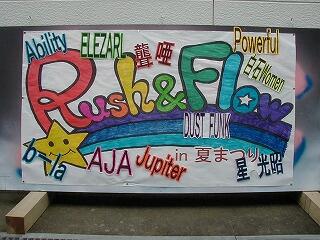 Ability ELEZARL 聾唖 Powerful
白石Women
Rush & Flow
DUST FUNK
b-la AJA Jupiter in 夏まつり 星光昭